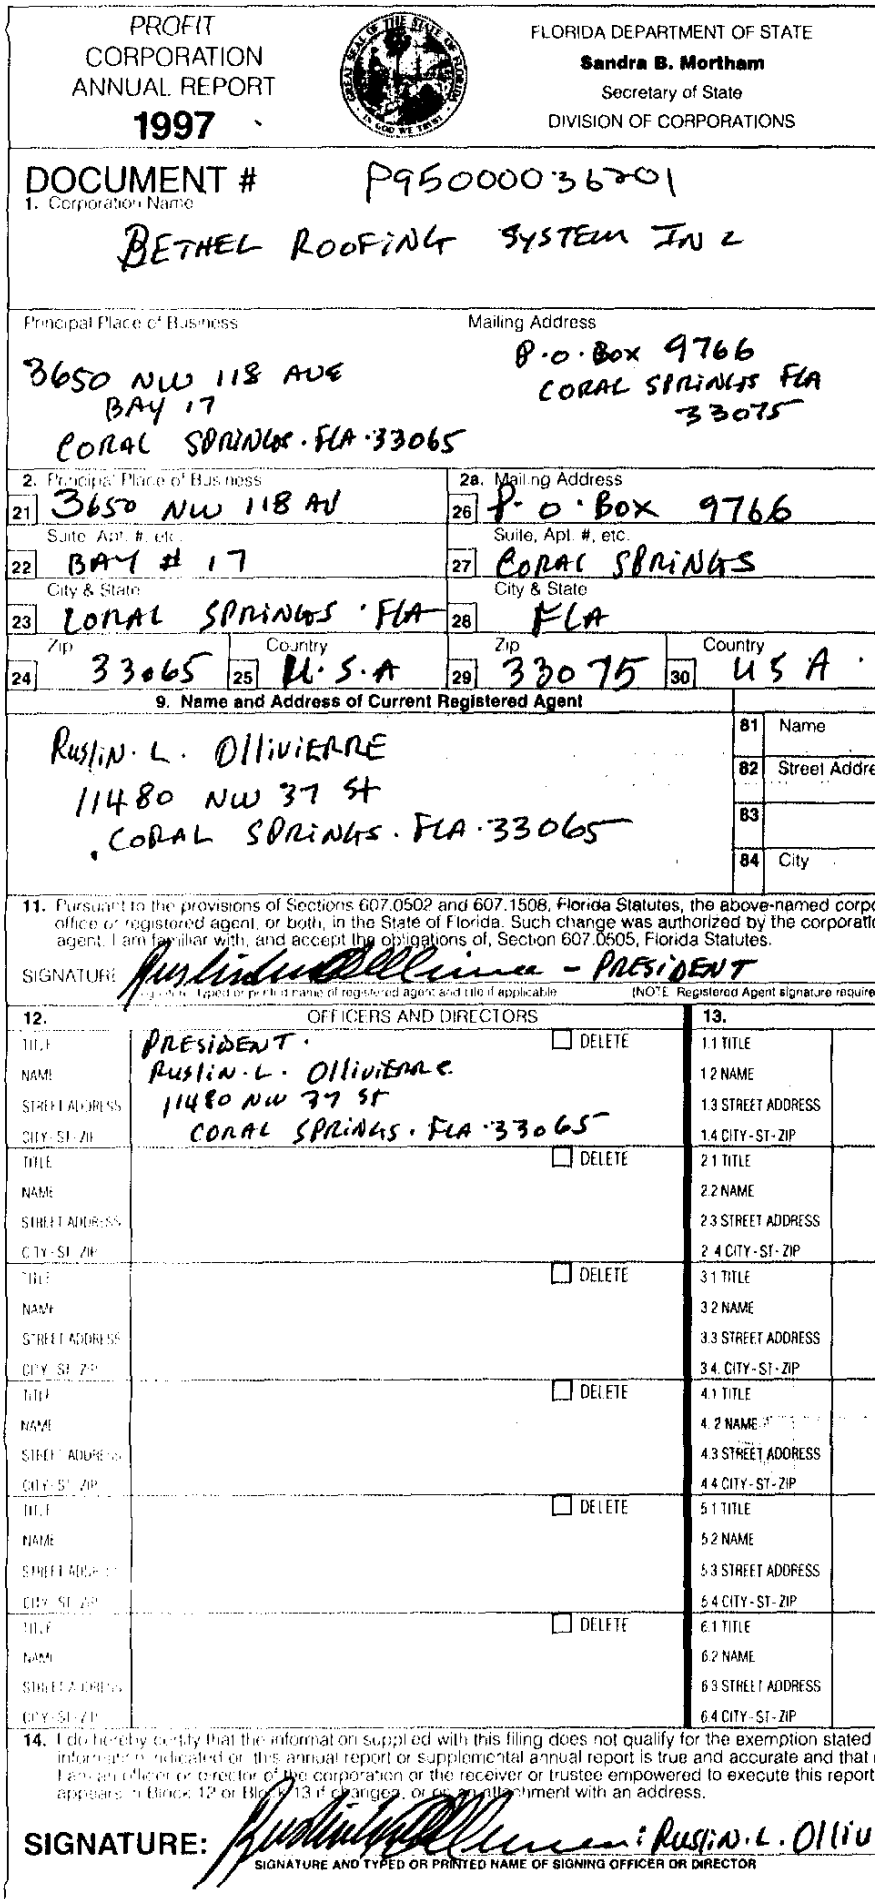 PROFIT
CORPORATION
ANNUAL REPORT
1997
GREAT SEAL OF THE STATE OF FLORIDA
IN GOD WE TRUST
FLORIDA DEPARTMENT OF STATE
Sandra B. Mortham
Secretary of State
DIVISION OF CORPORATIONS
DOCUMENT # P95000036201
1. Corporation Name
BETHEL ROOFING SYSTEM INC
Principal Place of Business
3650 NW 118 AVE
BAY 17
CORAL SPRINGS. FLA. 33065
Mailing Address
P.O. BOX 9766
CORAL SPRINGS FLA
33075
2. Principal Place of Business
21 3650 NW 118 AV
Suite, Apt. #, etc.
22 BAY # 17
City & State
23 CORAL SPRINGS. FLA
Zip
24 33065
Country
25 U.S.A
2a. Mailing Address
26 P.O. BOX 9766
Suite, Apt. #, etc.
27 CORAL SPRINGS
City & State
28 FLA
Zip
29 33075
Country
30 USA
9. Name and Address of Current Registered Agent
RUSLIN. L. OLLIVIERRE
11480 NW 37 St
CORAL SPRINGS. FLA. 33065
81 Name
82 Street Addre
83
84 City
11. Pursuant to the provisions of Sections 607.0502 and 607.1508, Florida Statutes, the above-named corpo
office or registered agent, or both, in the State of Florida. Such change was authorized by the corporatio
agent. I am familiar with, and accept the obligations of, Section 607.0505, Florida Statutes.
SIGNATURE - PRESIDENT
Signature, typed or printed name of registered agent and title if applicable (NOTE: Registered Agent signature require
12. OFFICERS AND DIRECTORS
TITLE PRESIDENT. DELETE
NAME RUSLIN. L. OLLIVIERRE
STREET ADDRESS 11480 NW 37 St
CITY-ST-ZIP CORAL SPRINGS. FLA. 33065
TITLE DELETE
NAME
STREET ADDRESS
CITY-ST-ZIP
TITLE DELETE
NAME
STREET ADDRESS
CITY-ST-ZIP
TITLE DELETE
NAME
STREET ADDRESS
CITY-ST-ZIP
TITLE DELETE
NAME
STREET ADDRESS
CITY-ST-ZIP
TITLE DELETE
NAME
STREET ADDRESS
CITY-ST-ZIP
13.
1.1 TITLE
1.2 NAME
1.3 STREET ADDRESS
1.4 CITY-ST-ZIP
2.1 TITLE
2.2 NAME
2.3 STREET ADDRESS
2.4 CITY-ST-ZIP
3.1 TITLE
3.2 NAME
3.3 STREET ADDRESS
3.4. CITY-ST-ZIP
4.1 TITLE
4.2 NAME
4.3 STREET ADDRESS
4.4 CITY-ST-ZIP
5.1 TITLE
5.2 NAME
5.3 STREET ADDRESS
5.4 CITY-ST-ZIP
6.1 TITLE
6.2 NAME
6.3 STREET ADDRESS
6.4 CITY-ST-ZIP
14. I do hereby certify that the information supplied with this filing does not qualify for the exemption stated
information indicated on this annual report or supplemental annual report is true and accurate and that
I am an officer or director of the corporation or the receiver or trustee empowered to execute this report
appears in Block 12 or Block 13 if changed, or on an attachment with an address.
SIGNATURE: : RUSLIN. L. OLLIV
SIGNATURE AND TYPED OR PRINTED NAME OF SIGNING OFFICER OR DIRECTOR